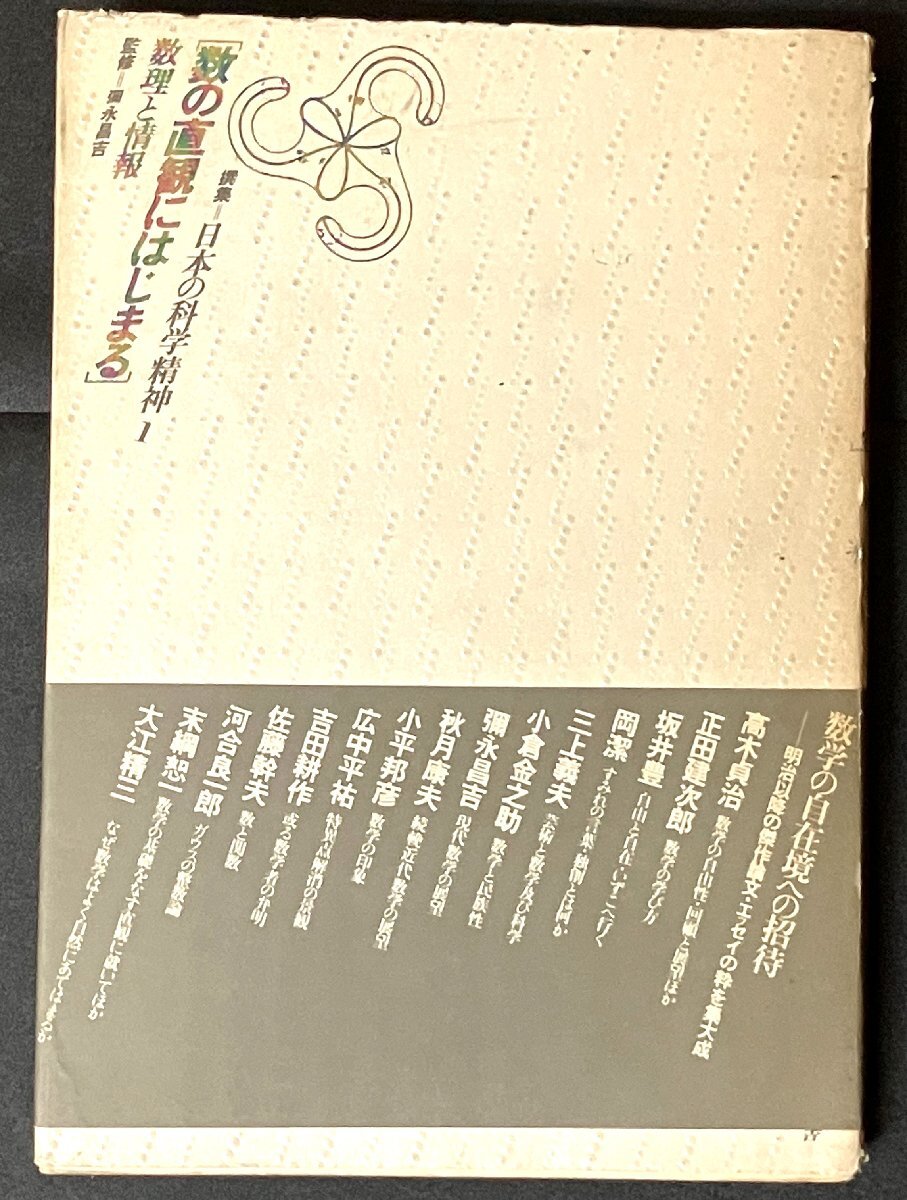 撰集=日本の科学精神1
[数の直観にはじまる]
数理と情報
監修=彌永昌吉
数学の自在境への招待
——明治以降の傑作論文・エセイの粋を集大成
高木貞治 数学の自由性・回顧と展望ほか
正田建次郎 数学の学び方
坂井豊 自由と自在・いずこへ行く
岡潔 すみれの言葉・独創とは何か
三上義夫 芸術と数学及び科学
小倉金之助 数学と民族性
彌永昌吉 現代数学の展望
秋月康夫 続輓近代数学の展望
小平邦彦 数学の印象
広中平祐 特異点解消の景観
吉田耕作 或る数学者の弁明
佐藤幹夫 数と函数
河合良一郎 ガウスの数論
末綱恕一 数学の基礎をなす直観に就いてほか
大江精三 なぜ数学はよく自然にあてはまるか